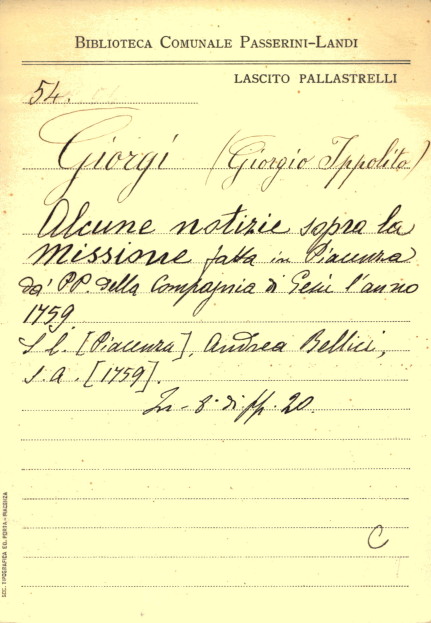 BIBLIOTECA COMUNALE PASSERINI-LANDI
LASCITO PALLASTRELLI
54.
Giorgi (Giorgio Ippolito)
Alcune notizie sopra la
missione fatta in Piacenza
da' PP. della Compagnia di Gesù l'anno
1759.
S. l. [Piacenza], Andrea Bellici,
s. a. [1759].
In-8° di pp. 20.
C
SOC. TIPOGRAFICA ED. PORTA - PIACENZA